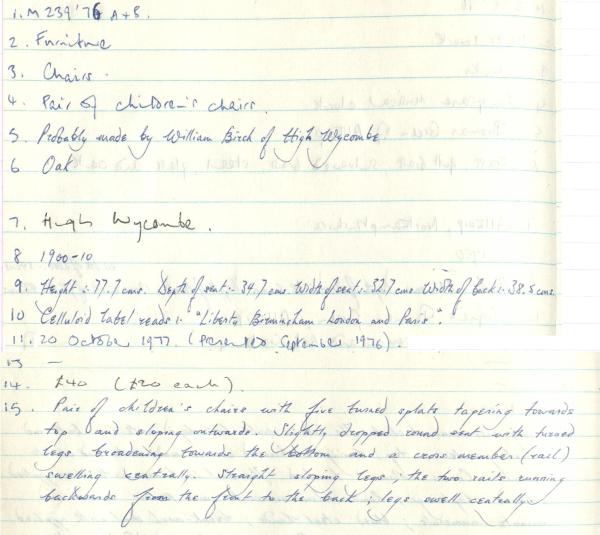 1. M 239 '76 A+B.
2. Furniture
3. Chairs.
4. Pair of children's chairs.
5. Probably made by William Birch of High Wycombe
6 Oak
7. High Wycombe.
8 1900-10
9. Height :- 77.7 cms. Depth of seat :- 34.7 cms Width of seat :- 32.7 cms Width of back :- 38.5 cms.
10 Celluloid label reads :- "Liberty Birmingham London and Paris".
11. 20 October 1977. (Presented September 1976).
13 —
14. £40 (£20 each).
15. Pair of children's chairs with five turned splats tapering towards
top and sloping outwards. Slightly dropped round seat with turned
legs broadening towards the bottom and a cross member (rail)
swelling centrally. Straight sloping legs; the two rails running
backwards from the front to the back; legs swell centrally.